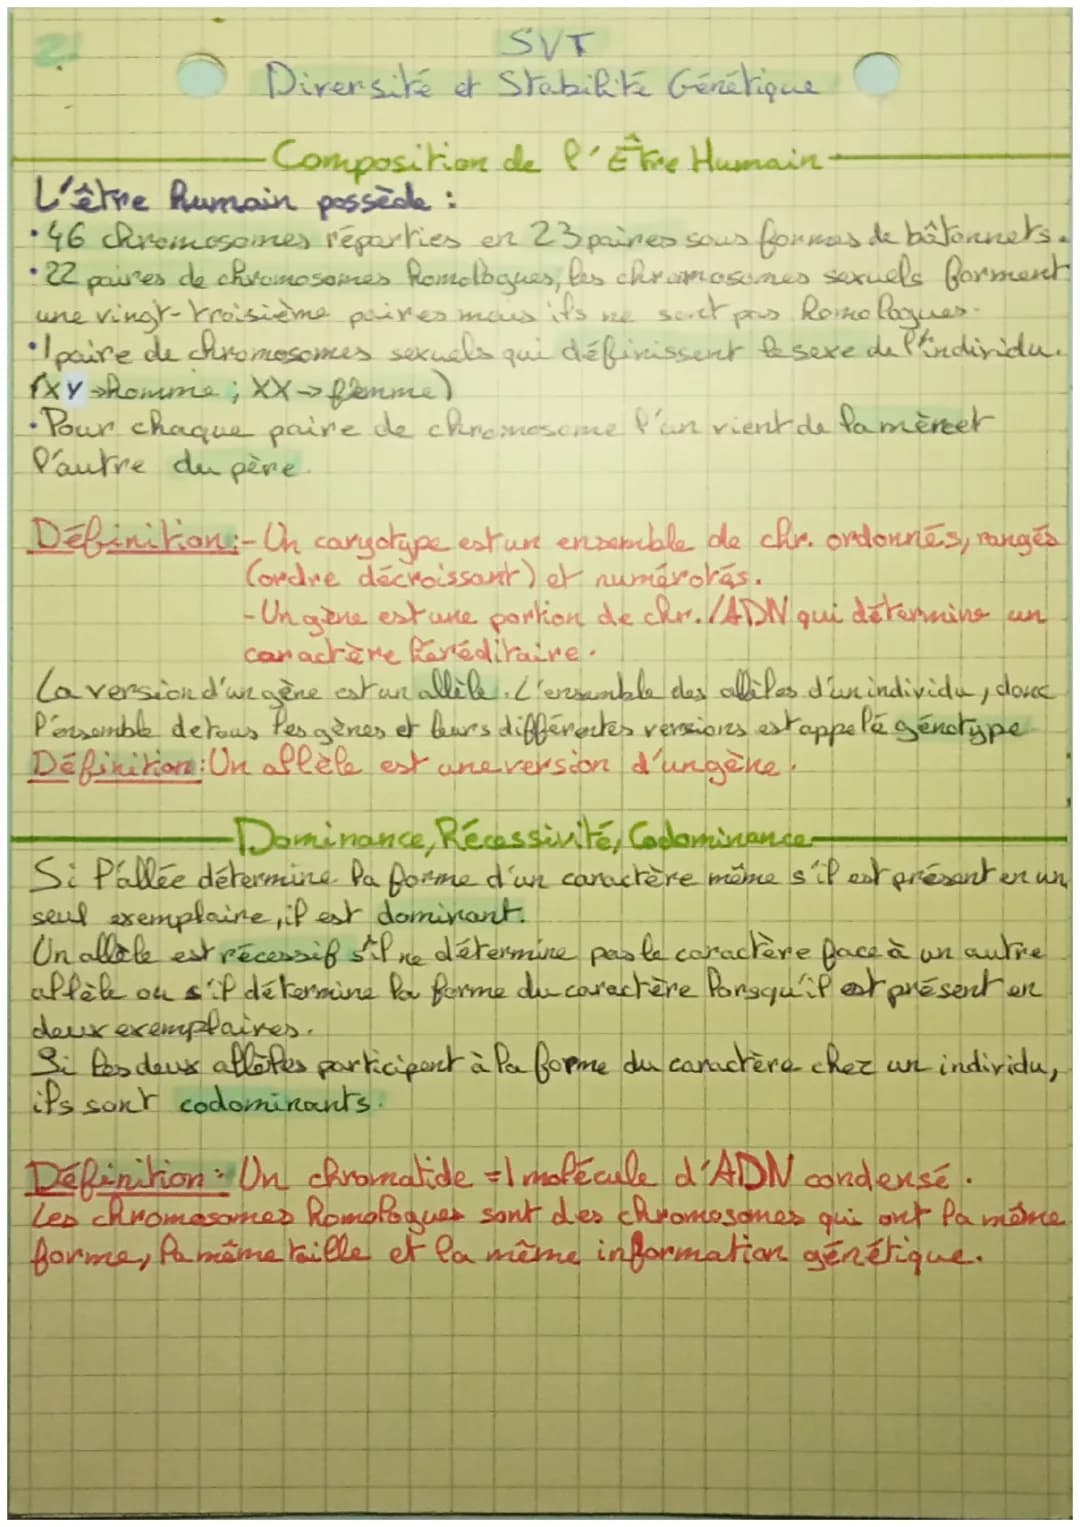 2.
SVT
Diversité et Stabilité Génétique
Composition de l'Être Humain
L'être humain possède :
• 46 chromosomes réparties en 23 paires sous formes de bâtonnets.
• 22 paires de chromosomes homologues, les chromosomes sexuels forment
une vingt-troisième paires mais ils ne sont pas homologues.
• 1 paire de chromosomes sexuels qui définissent le sexe de l'individu.
(XY → homme ; XX → femme)
• Pour chaque paire de chromosome l'un vient de la mère et
l'autre du père.
Définition : - Un caryotype est un ensemble de chr. ordonnés, rangés
(ordre décroissant) et numérotés.
- Un gène est une portion de chr./ADN qui détermine un
caractère héréditaire.
La version d'un gène est un allèle. L'ensemble des allèles d'un individu, donc
l'ensemble de tous les gènes et leurs différentes versions est appelé génotype
Définition : Un allèle est une version d'un gène.
Dominance, Récessivité, Codominance
Si l'allée détermine la forme d'un caractère même s'il est présent en un
seul exemplaire, il est dominant.
Un allèle est récessif s'il ne détermine pas le caractère face à un autre
allèle ou s'il détermine la forme du caractère lorsqu'il est présent en
deux exemplaires.
Si les deux allèles participent à la forme du caractère chez un individu,
ils sont codominants.
Définition : Un chromatide = 1 molécule d'ADN condensé.
Les chromosomes homologues sont des chromosomes qui ont la même
forme, la même taille et la même information génétique.